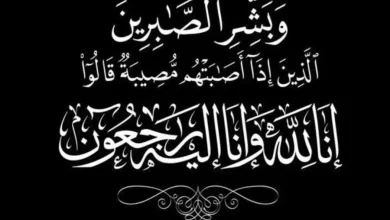 وَبَشِّرِ الصَّابِرِينَ
الَّذِينَ إِذَآ أَصَابَتْهُم مُّصِيبَةٌ قَالُوٓا۟
إِنَّا لِلَّهِ وَإِنَّا إِلَيْهِ رَاجِعُونَ